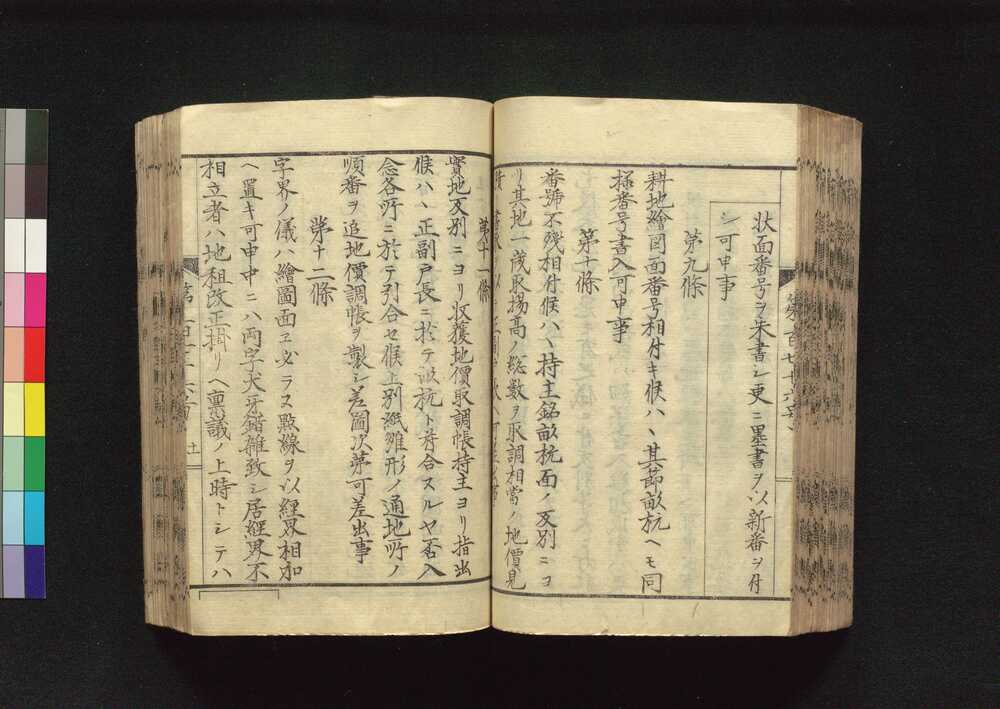 状面番号ヲ朱書シ更ニ墨書ヲ以新番ヲ付
シ可申事
第九條
耕地繪図面番号相付キ候ハヽ其節畝杭ヘモ同
様番号書入可申事
第十條
番號不残相付候ハヽ持主銘畝杭面ノ反別ニヨ
リ其地一歳取揚高ノ総数ヲ取調相當ノ地價見
第十一條
實地反別ニヨリ收獲地價取調帳持主ヨリ指出
候ハヽ正副戸長ニ於テ畝杭ト符合スルヤ否入
念各所ニ於テ引合セ候上別紙雛形ノ通地所ノ
順番ヲ追地價調帳ヲ製シ差圖次第可差出事
第十二條
字界ノ儀ハ繪圖面エ必ラス點線ヲ以經界相加
ヘ置キ可申中ニハ両字犬牙錯雑致シ居經界不
相立者ハ地租改正掛リヘ稟議ノ上時トシテハ